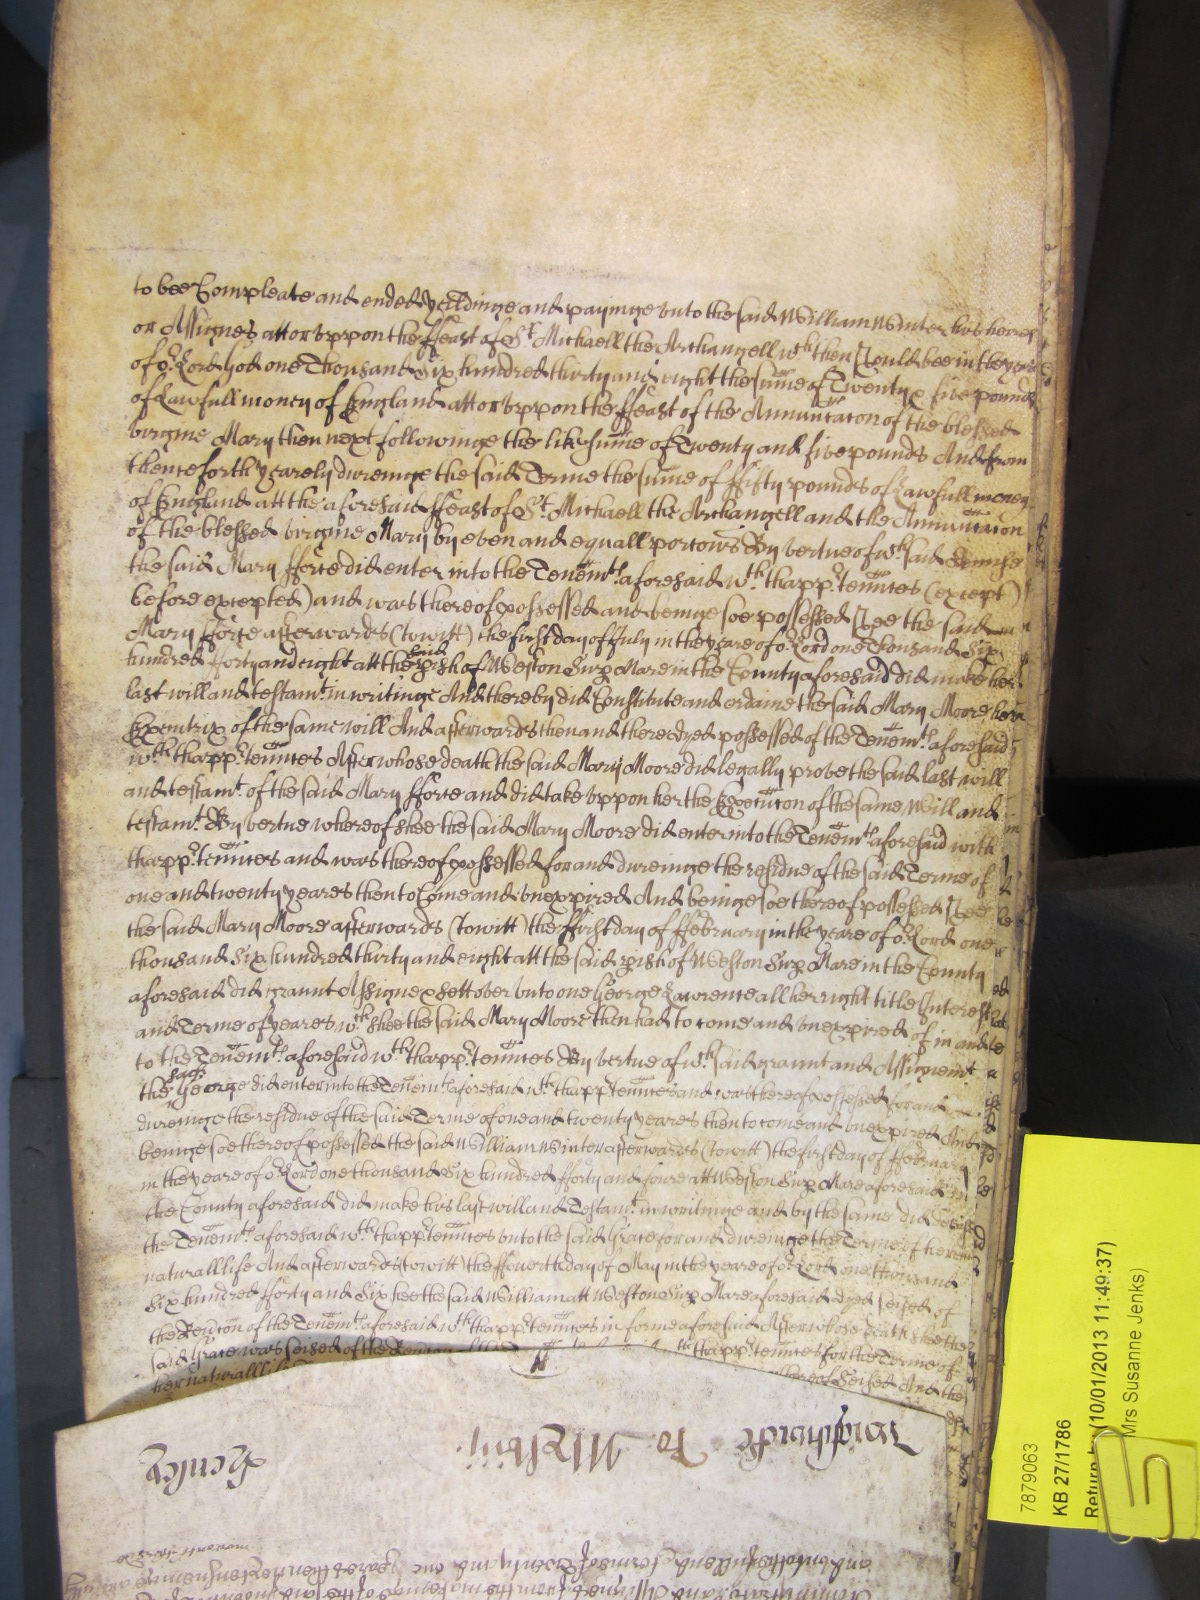 to bee Compleate and ended Yeildinge and payinge unto the said William Winter his heires
or Assignes att or uppon the ffeast of St. Michaell the Archangell wch then should bee in the yeare
of or. Lord God one Thousand Six hundred thirty and eight the sume of Twenty & five pounds
of Lawfull money of England att or uppon the ffeast of the Annuntacon of the blessed
virgine Mary then next followinge the like sume of Twenty and five pounds And from
thenceforth yearely dureinge the said Terme the sume of ffifty pounds of Lawfull money
of England att the aforesaid ffeast of St. Michaell the Archangell and the Annuntacon
of the blessed virgine Mary by even and equall portons By vertue of wch said demise
the said Mary fforte did enter into the Tenemts. aforesaid wth. thapp'tennces (except
before excepted) and was thereof possessed and beinge soe possessed Shee the said
Mary fforte afterwards (to witt) the first day of July in the yeare of or Lord one Thousand Six
hundred fforty and eight att the said pish of Weston Sup Mare in the County aforesaid did make her
last will and testamt. in writinge And thereby did Constitute and ordaine the said Mary Moore her
Executrix of the same will And afterwards then and there dyed possessed of the Tenemts. aforesaid
wth. thapp'tennces After whose death the said Mary Moore did legally probe the said last will
and testamt. of the said Mary fforte and did take uppon her the Execucon of the same Will and
testamt. By vertue whereof shee the said Mary Moore did enter into the Tenemts. aforesaid with
thapp'tennces and was thereof possessed for and dureinge the residue of the said Terme of
one and twenty yeares then to Come and unexpired And beinge soe thereof possessed Shee
the said Mary Moore afterwards (to witt) the ffirst day of ffebruary in the yeare of or. Lord one
thousand Six hundred thirty and eight att the said pish of Weston Sup Mare in the County
aforesaid did graunt Assigne & sett over unto one George Lawrence all her right title Interest
and Terme of yeares wch. shee the said Mary Moore then had to come and unexpired of in and
to the Tenemts. aforesaid wth. thapp'tennces By vertue of wch said graunt and Assignemt
the said George did enter into the Tenemts. aforesaid wth. thapp'tennces and was thereof possessed for and
dureinge the residue of the said Terme of one and twenty yeares then to come and unexpired And
beinge soe thereof possessed the said William Winter afterwards (to witt) the first day of ffebruary
in the yeare of or. Lord one thousand Six hundred fforty and foure att Weston Sup Mare aforesaid in
the County aforesaid did make his last will and Testamt. in writinge and by the same did devise
the Tenemts. aforesaid wth. thapp'tennces unto the said Grace for and dureinge the Terme of her
naturall life And afterwards (to witt) the ffourth day of May in the yeare of or. Lord one thousand
Six hundred fforty and Six hee the said William att Weston Sup Mare aforesaid dyed seised of
the Revercon of the Tenemts. aforesaid wth. thapp'tennces in forme aforesaid After whose death shee the
said Grace was seised of the thapp'tennces for the Terme of
her naturall life thereof Seised And the
Henley
To
7879063
KB 27/1786
Return by (10/01/2013 11:49:37)
Mrs Susanne Jenks)